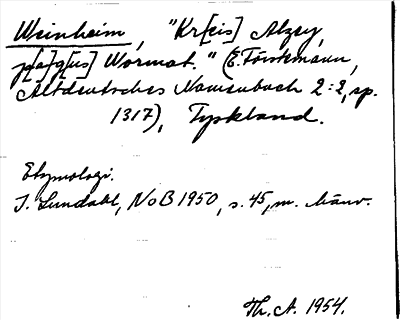 Weinheim, "Kr[eis] Alzey,
p[a]g[us] Wormat." (E. Förstemann,
Altdeutsches Namenbuch 2:2, sp.
1317), Tyskland.
Etymologi.
I. Lundahl, NoB 1950, s. 45, m. hänv.
Th. A. 1954.